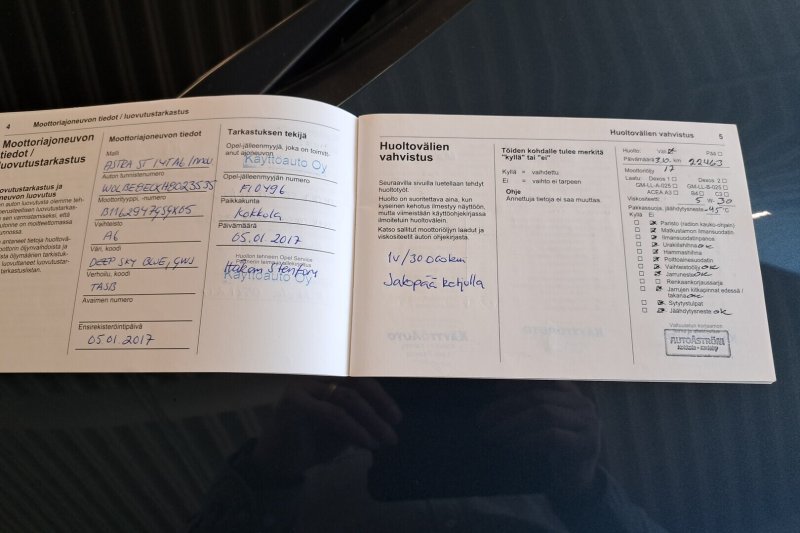 4 Moottoriajoneuvon tiedot / luovutustarkastus
Moottoriajoneuvon
tiedot /
luovutustarkastus
Moottoriajoneuvon tiedot
Malli
ASTRA ST 1.4T A6 / INNOV.
Auton tunnistenumero
Moottorityyppi, -numero
Vaihteisto
A6
Väri, koodi
DEEP SKY BLUE, GWS
Verhoilu, koodi
TASB
Avaimen numero
Ensirekisteröintipäivä
05.01.2017
Tarkastuksen tekijä
Opel-jälleenmyyjä, joka on toimit-
tanut ajoneuvon
Käyttöauto Oy
Opel-jälleenmyyjän numero
FI0496
Paikkakunta
Kokkola
Päivämäärä
05.01.2017
Huollon tehneen Opel Service
Partnerin leima/allekirjoitus
Håkan Stenfors
Käyttöauto Oy
Huoltovälien vahvistus 5
Huoltovälien
vahvistus
Seuraavilla sivuilla luetellaan tehdyt
huoltotyöt.
Huolto on suoritettava aina, kun
kyseinen kehotus ilmestyy näyttöön,
mutta viimeistään käyttöohjekirjassa
ilmoitetuin huoltovälein.
Katso sallitut moottoriöljyn laadut ja
viskositeetit auton ohjekirjasta.
1v/30 000km
Jakopää ketjulla
Töiden kohdalle tulee merkitä
"kyllä" tai "ei"
Kyllä = vaihdettu
Ei = vaihto ei tarpeen
Ohje
Annettuja tietoja ei saa muuttaa.
Huolto: Väli Pää
Päivämäärä km 22463
Moottoriöljy 17
Laatu: Dexos 1 Dexos 2
GM-LL-A-025 GM-LL-B-025
ACEA A3 B4 C3
Viskositeetti 5 W- 30
Pakkassuoja, jäähdytysneste -45 °C
Kyllä Ei
Paristo (radion kauko-ohjain)
Matkustamon ilmansuodatin
Ilmansuodatinpanos
Urakiilahihna ok
Hammashihna
Polttoainesuodatin
Vaihteistoöljy ok
Jarruneste ok
Renkaankorjaussarja
Jarrujen kitkapinnat edessä /
takana ok
Sytytystulpat
Jäähdytysneste ok
Valtuutetun korjaamon
AUTOÅSTRÖM